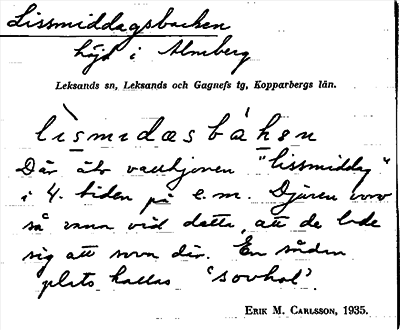 Lissmiddagsbacken
höjd i Almberg
Leksands sn, Leksands och Gagnefs tg, Kopparbergs län.
lìsmıdasbákən
Där åto vallhjonen "lissmiddag"
i 4. tiden på e.m. Djuren voro
så vana vid detta, att de lade
sig att sova där. En sådan
plats kallas 'sovhol'.
ERIK M. CARLSSON, 1935.